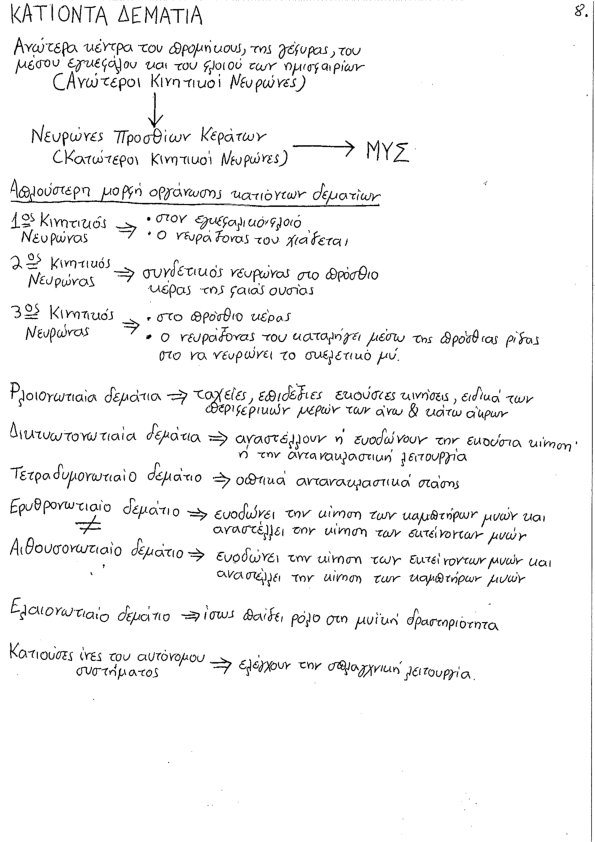 ΚΑΤΙΟΝΤΑ ΔΕΜΑΤΙΑ
8.
Ανώτερα κέντρα του προμήκους, της γέφυρας, του
μέσου εγκεφάλου και του φλοιού των ημισφαιρίων
(Ανώτεροι Κινητικοί Νευρώνες)
Νευρώνες Προσθίων Κεράτων
(Κατώτεροι Κινητικοί Νευρώνες) → ΜΥΣ
Απλούστερη μορφή οργάνωσης κατιόντων δεματίων
1ος Κινητικός Νευρώνας ⇒ • στον εγκεφαλικό φλοιό
• ο νευράξονας του χιάζεται
2ος Κινητικός Νευρώνας ⇒ συνδετικός νευρώνας στο πρόσθιο
κέρας της φαιάς ουσίας
3ος Κινητικός Νευρώνας ⇒ • στο πρόσθιο κέρας
• ο νευράξονας του καταλήγει μέσω της πρόσθιας ρίζας
στο να νευρώνει το σκελετικό μύ.
Φλοιονωτιαία δεμάτια ⇒ ταχείες, επιδέξιες εκούσιες κινήσεις, ειδικά των
περιφερικών μερών των άνω & κάτω άκρων
Δικτυωτονωτιαία δεμάτια ⇒ αναστέλλουν ή ευοδώνουν την εκούσια κίνηση
ή την αντανακλαστική λειτουργία
Τετραδυμονωτιαίο δεμάτιο ⇒ οπτικά αντανακλαστικά στάσης
Ερυθρονωτιαίο δεμάτιο ⇒ ευοδώνει την κίνηση των καμπτήρων μυών και
αναστέλλει την κίνηση των εκτείνοντων μυών
≠
Αιθουσονωτιαίο δεμάτιο ⇒ ευοδώνει την κίνηση των εκτείνοντων μυών και
αναστέλλει την κίνηση των καμπτήρων μυών
Ελαιονωτιαίο δεμάτιο ⇒ ίσως παίζει ρόλο στη μυϊκή δραστηριότητα
Κατιούσες ίνες του αυτόνομου
συστήματος ⇒ ελέγχουν την σπλαγχνική λειτουργία.